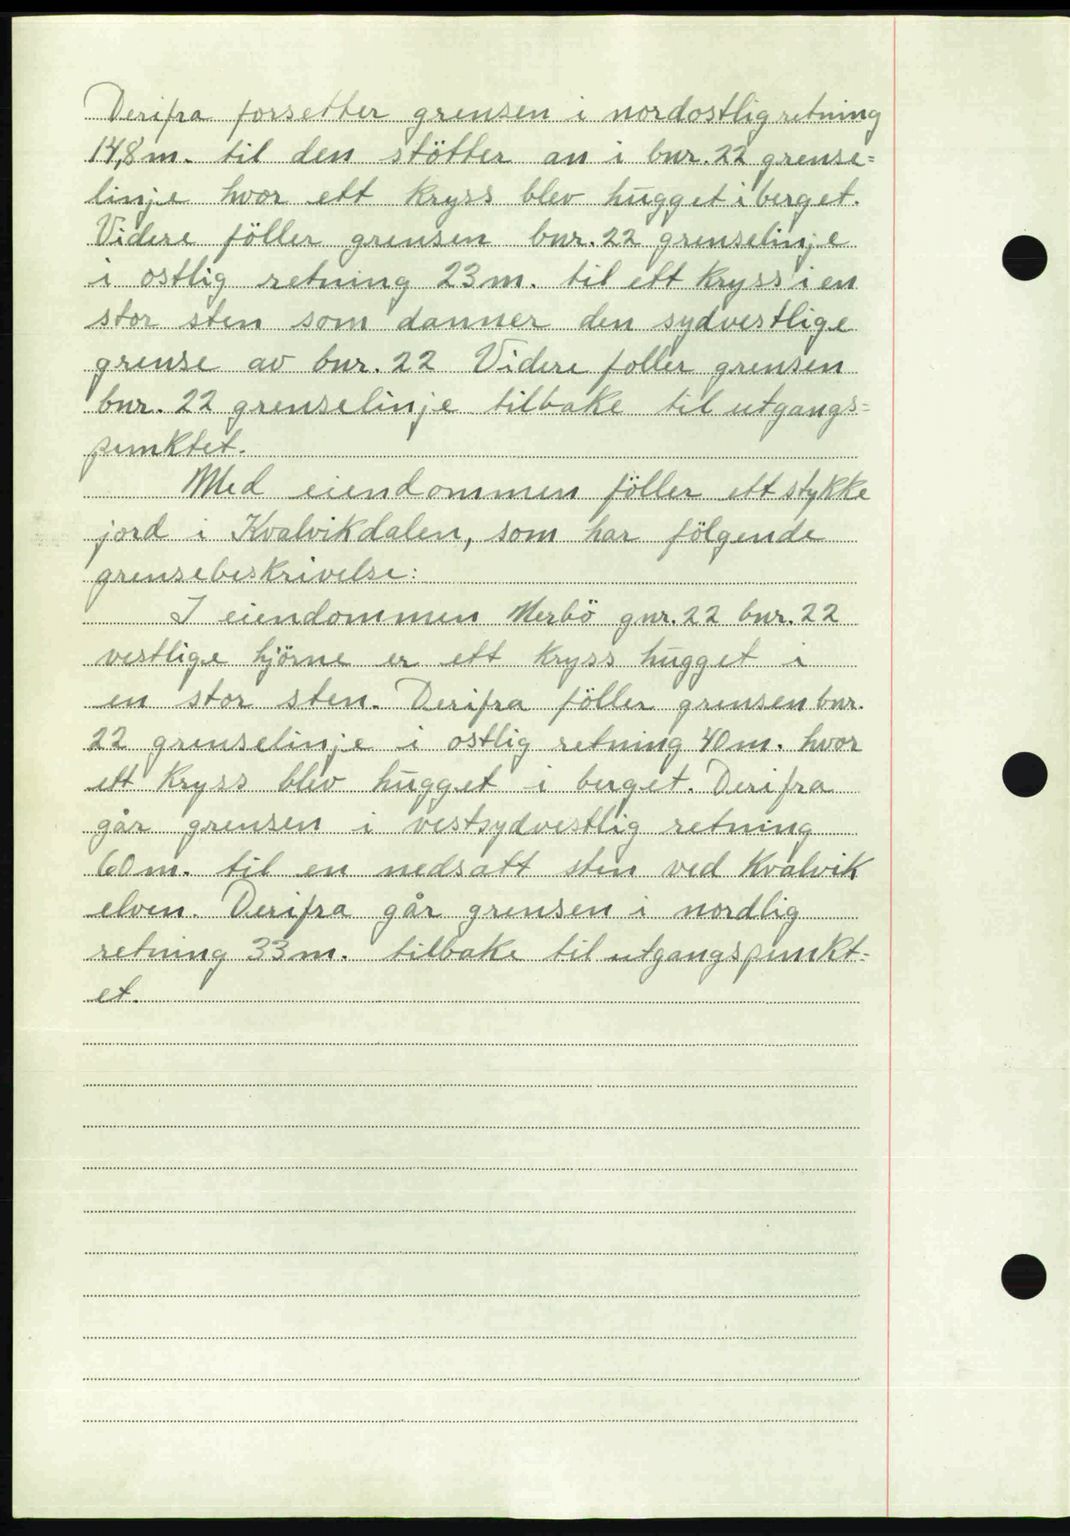 Derifra forsetter grensen i nordostlig retning
14,8 m. til den stötter an i bnr. 22 grense=
linje hvor ett kryss blev hugget i berget.
Videre föller grensen bnr. 22 grenselinje
i ostlig retning 23 m. til ett kryss i en
stor sten som danner den sydvestlige
grense av bnr. 22 Videre foller grensen
bnr. 22 grenselinje tilbake til utgangs=
punktet.
Med eiendommen föller ett stykke
jord i Kvalvikdalen, som har fölgende
grensebeskrivelse:
I eiendommen Merbö gnr. 22 bnr. 22
vestlige hjörne er ett kryss hugget i
en stor sten. Derifra föller grensen bnr.
22 grenselinje i ostlig retning 40 m. hvor
ett kryss blev hugget i berget. Derifra
går grensen i vestsydvestlig retning
60 m. til en nedsatt sten ved Kvalvik
elven. Derifra går grensen i nordlig
retning 33 m. tilbake til utgangspunkt=
et.